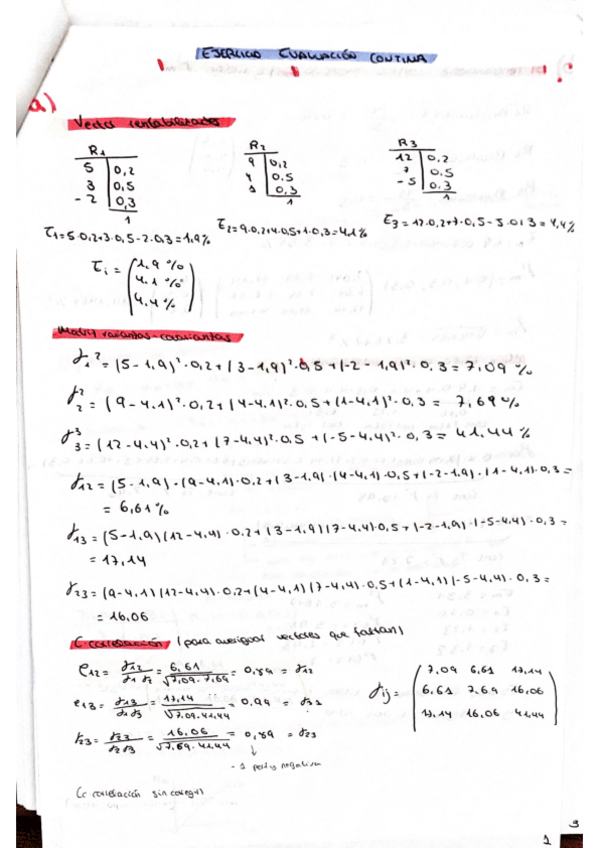 EJERCICIO EVALUACIÓN CONTINA
a)
Vector rentabilidades
R1 R2 R3
5 0,2 9 0,2 12 0,2
3 0,5 4 0,5 7 0,5
-2 0,3 1 0,3 -5 0,3
1 1 1
E1=5·0,2+3·0,5-2·0,3=1,9% E2=9·0,2+4·0,5+1·0,3=4,1% E3=12·0,2+7·0,5-5·0,3=4,4%
Ei = (1,9 %
4,1 %
4,4 %)
Matriz varianzas-covarianzas
σ1² = (5-1,9)²·0,2+(3-1,9)²·0,5+(-2-1,9)²·0,3=7,09 %
σ2² = (9-4,1)²·0,2+(4-4,1)²·0,5+(1-4,1)²·0,3= 7,69%
σ3³ = (12-4,4)²·0,2+(7-4,4)²·0,5+(-5-4,4)²·0,3=41,44 %
σ12= (5-1,9)·(9-4,1)·0,2+(3-1,9)·(4-4,1)·0,5+(-2-1,9)·(1-4,1)·0,3=
= 6,61%
σ13= (5-1,9)(12-4,4)·0,2+(3-1,9)(7-4,4)·0,5+(-2-1,9)·(-5-4,4)·0,3=
= 17,14
σ23= (9-4,1)(12-4,4)·0,2+(4-4,1)(7-4,4)·0,5+(1-4,1)(-5-4,4)·0,3=
= 16,06
C correlación (para averiguar vectores que faltan)
ρ12= σ12/σ1 σ2 = 6,61/√7,09·7,69 = 0,89 = σ12
ρ13= σ13/σ1 σ3 = 17,14/√7,09·41,44 = 0,99 = σ31
σ23= σ23/σ2 σ3 = 16,06/√7,69·41,44 = 0,89 = σ23
σij= (7,09 6,61 17,14
6,61 7,69 16,06
17,14 16,06 41,44)
- 1 post y negativa
(c correlación sin corregir)
3
1